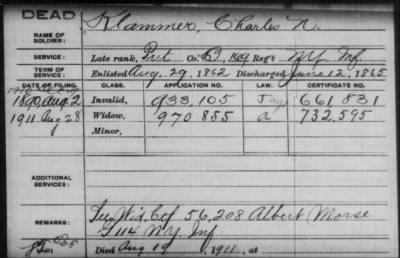 DEAD
NAME OF SOLDIER: Klammer, Charles N.
SERVICE: Late rank, Pvt Co. D, 109 Reg't N.Y. Inf.
TERM OF SERVICE: Enlisted Aug. 29, 1862 Discharged June 12, 1865
DATE OF FILING. CLASS. APPLICATION NO. LAW. CERTIFICATE NO.
1890, Aug 2 Invalid, 933,105 661,831
1911 Aug 28 Widow, 970 855 a 732,595
Minor,
ADDITIONAL SERVICES:
REMARKS: Wid. Ctf 56,208 Albert Morse
114 N.Y. Inf
Died Aug 19, 1911, at